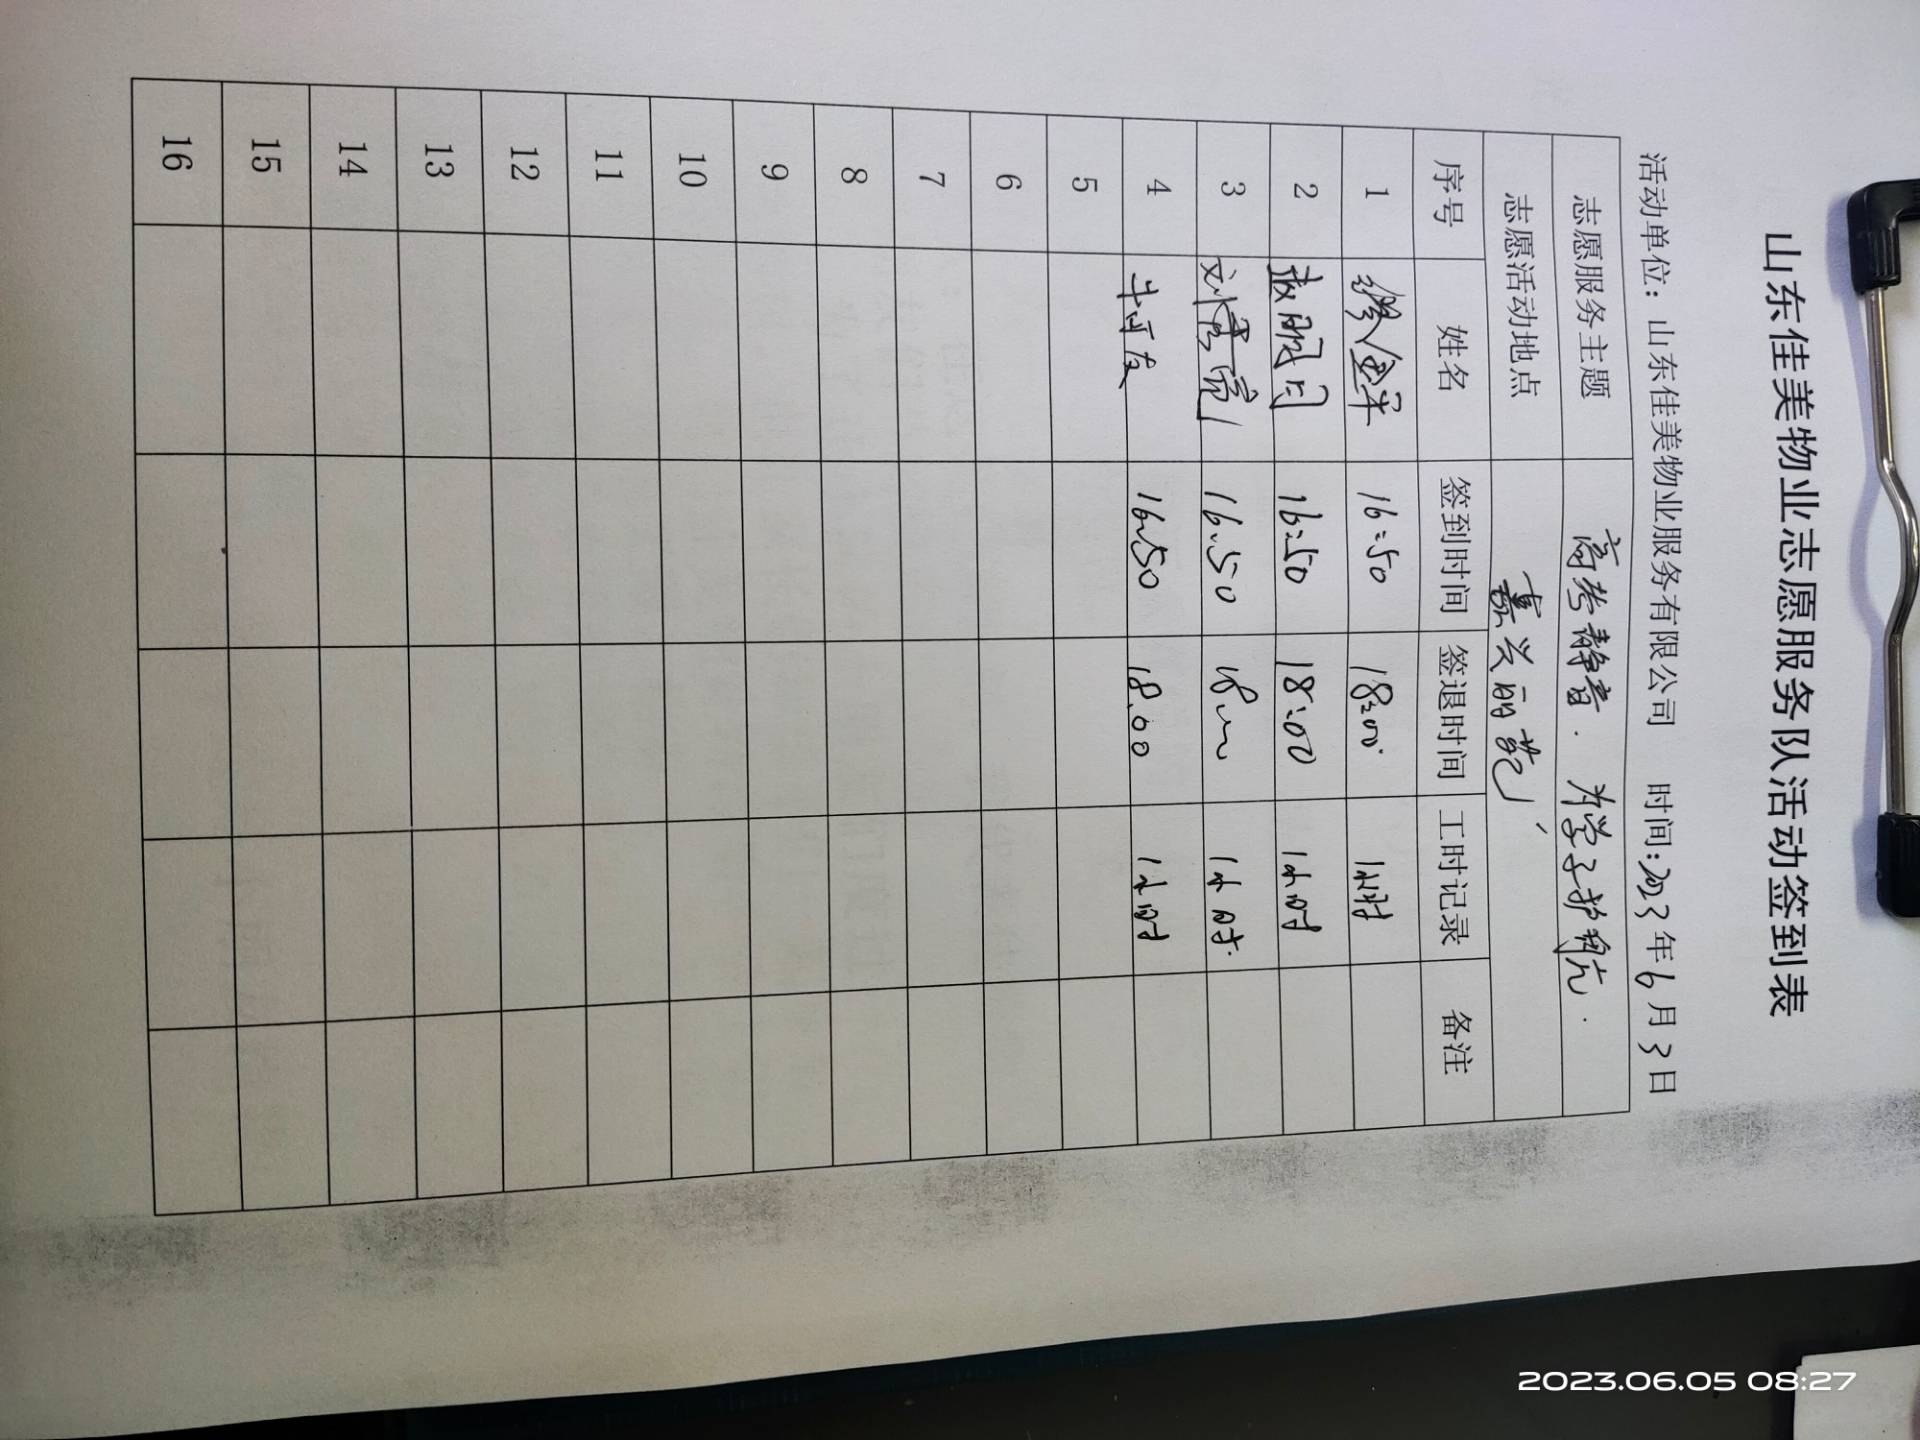 山东佳美物业志愿服务队活动签到表
活动单位：山东佳美物业服务有限公司 时间：2023年6月3日
志愿服务主题 高考静音．为学子护航．
志愿活动地点 嘉兴丽苑
序号 姓名 签到时间 签退时间 工时记录 备注
1 16:50 18:00 1小时
2 明月 16:50 18:00 1小时
3 刘 16:50 18 1小时
4 16:50 18:00 1小时
5
6
7
8
9
10
11
12
13
14
15
16
2023.06.05 08:27